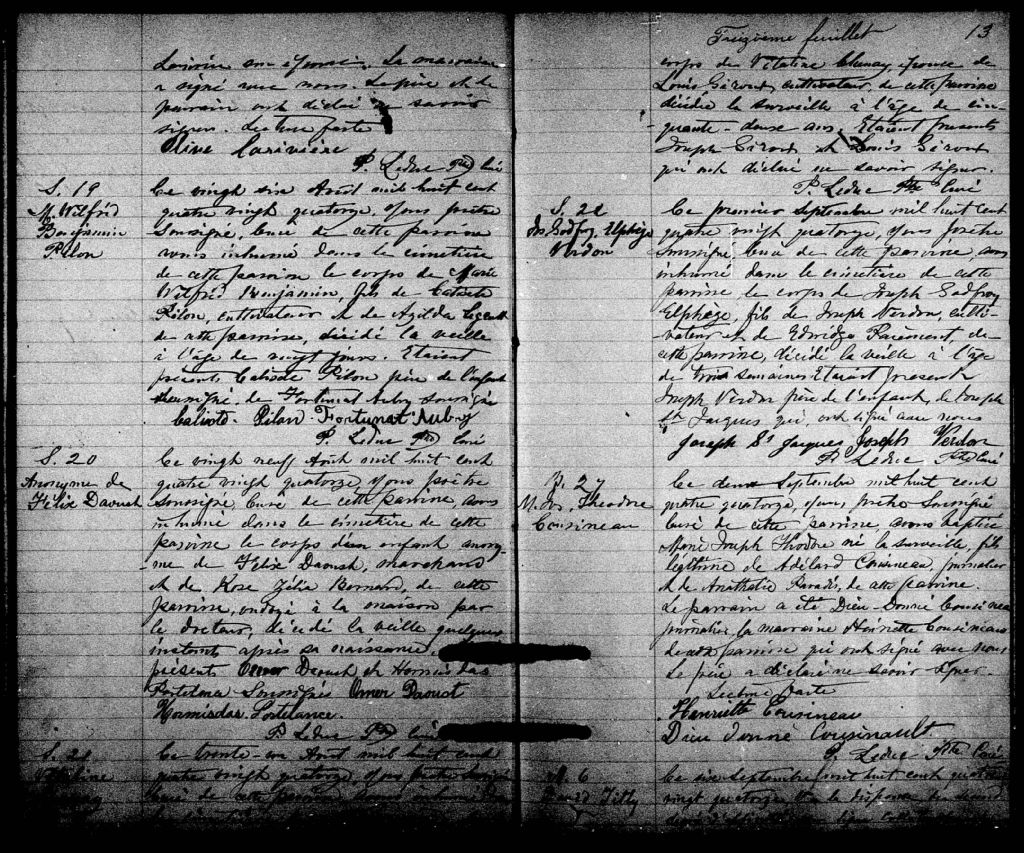 son épouse. La marraine
a signé avec nous. Le père et le
parrain ont déclaré ne savoir
signer. Lecture faite
Olive Larivière
P. Leduc Ptre Curé
S. 19
M. Wilfrid
Benjamin
Pilon
Ce vingt six Août mil huit cent
quatre vingt quatorze, Nous prêtre
soussigné, Curé de cette paroisse
avons inhumé dans le cimetière
de cette paroisse le corps de Marie
Wilfrid Benjamin, fils de Calixte
Pilon, cultivateur et de Azilda
de cette paroisse, décédé la veille
à l'âge de vingt jours. Etaient
présents Calixte Pilon père de l'enfant
et Fortunat Aubry soussigné
Calixte Pilon Fortunat Aubry
P. Leduc Ptre Curé
S. 20
Anonyme de
Félix Daoust
Ce vingt neuf Août mil huit cent
quatre vingt quatorze, Nous prêtre
soussigné, Curé de cette paroisse, avons
inhumé dans le cimetière de cette
paroisse le corps d'un enfant anony-
me de Félix Daoust, marchand
et de Rose Zélia Bernard, de cette
paroisse, ondoyé à la maison par
le docteur, décédé la veille quelques
instants après sa naissance.
présents Omer Daoust et Hormisdas
Portelance Soussignés Omer Daoust
Hormisdas Portelance.
P. Leduc Ptre Curé
S. 21
Ce trente-un Août mil huit cent
quatre vingt quatorze, Nous prêtre soussigné
Curé de cette paroisse, avons inhumé dans
Treizième feuillet 13
corps de Vitaline Clunay, épouse de
Louis Giroux, cultivateur, de cette paroisse
décédée la surveille à l'âge de cin-
-quante-douze ans. Etaient présents
Joseph Giroux et Louis Giroux
qui ont déclaré ne savoir signer.
P. Leduc Ptre Curé
S. 22
Jos. Godfroy Elphège
Verdon
Ce premier Septembre mil huit cent
quatre vingt quatorze, Nous prêtre
soussigné, Curé de cette paroisse, avons
inhumé dans le cimetière de cette
paroisse, le corps de Joseph Godfroy
Elphège, fils de Joseph Verdon, culti-
-vateur et de Edwidge Paiement de
cette paroisse, décédé la veille à l'âge
de trois semaines. Etaient présents
Joseph Verdon père de l'enfant, et Joseph
St Jacques qui, ont signé avec nous
Joseph St Jacques Joseph Verdon
P. Leduc Ptre Curé
B. 27
M. Jos. Théodore
Cousineau
Ce deux Septembre mil huit cent
quatre vingt quatorze, nous, prêtre soussigné
Curé de cette paroisse, avons baptisé
Marie Joseph Théodore né la surveille, fils
légitime de Adélard Cousineau, journalier
et de Anathalie Paradis, de cette paroisse.
Le parrain a été Dieu-Donné Cousineau
journalier, la marraine Henriette Cousineau
de cette paroisse qui ont signé avec nous.
Le père a déclaré ne savoir signer.
Lecture faite
Henriette Cousineau
Dieu donné Cousinault
P. Leduc Ptre Curé
M. 6
David Tilly
Ce six Septembre mil huit cent quatre
vingt quatorze, Vu la dispense de